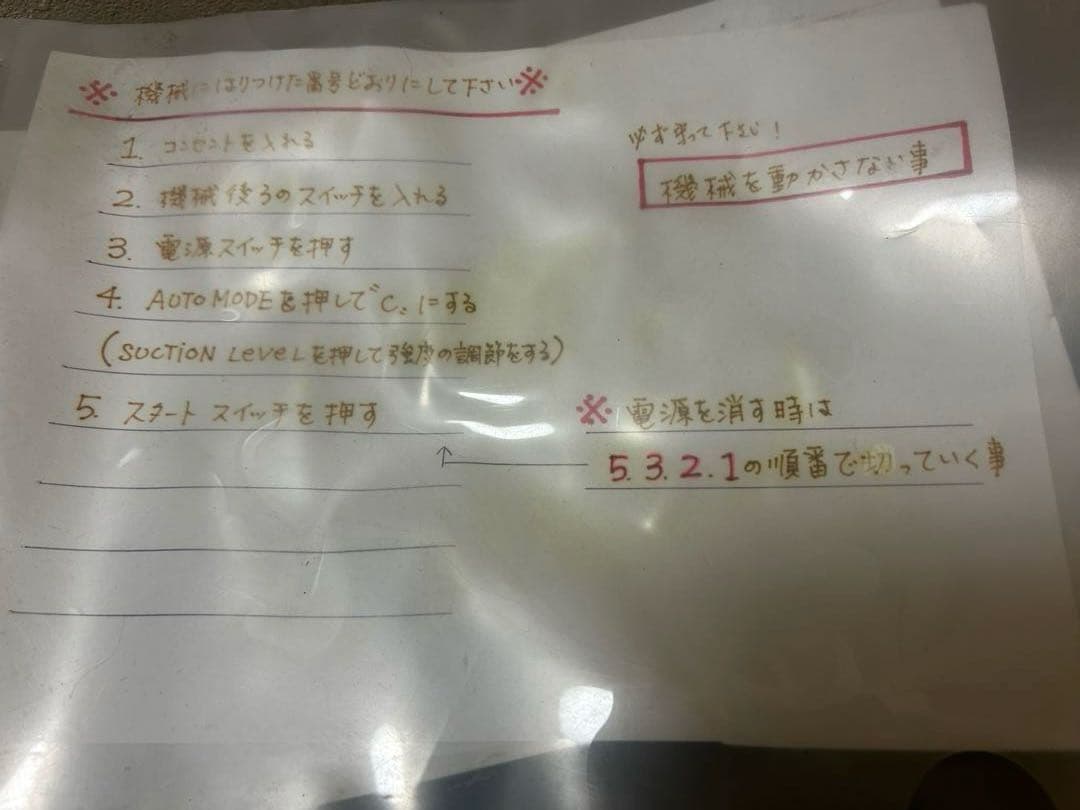 ※ 機械にはりつけた番号どおりにして下さい ※
1. コンセントを入れる
2. 機械後ろのスイッチを入れる
3. 電源スイッチを押す
4. AUTO MODEを押して"C"にする
(SUCTION LEVELを押して強度の調節をする)
5. スタート スイッチを押す
必ず守って下さい!
機械を動かさない事
※ 電源を消す時は
5.3.2.1の順番で切っていく事